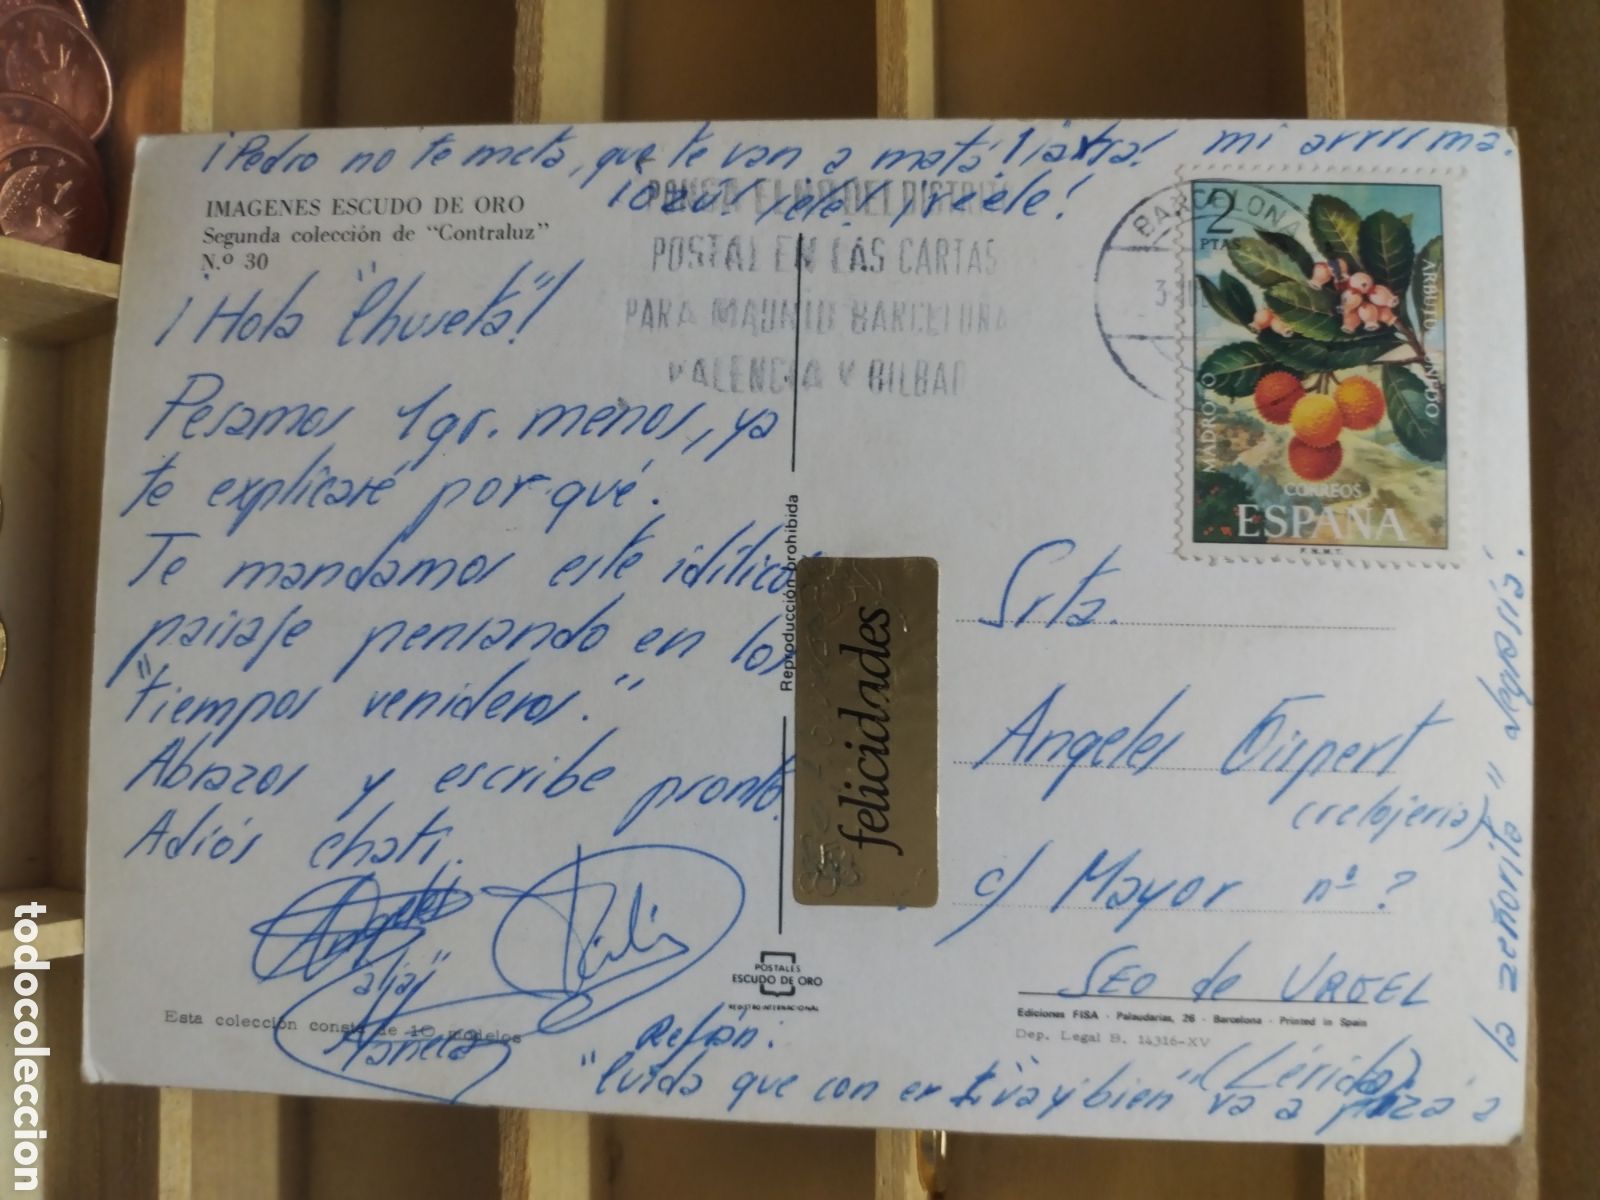 ¡Pedro no te metá, que te van a matá! mi arrrrma.
IMAGENES ESCUDO DE ORO
Segunda colección de "Contraluz"
N.º 30
PONGA EL Nº DEL DISTRITO
POSTAL EN LAS CARTAS
PARA MADRID BARCELONA
VALENCIA Y BILBAO
BARCELONA
2
PTAS
MADROÑO
ARBUTUS UNEDO
CORREOS
ESPAÑA
F.N.M.T.
¡Hola "Chuseta"!
Pesamos 1gr. menos, ya
te explicaré por qué.
Te mandamos este idílico
paisaje pensando en los
"tiempos venideros."
Abrazos y escribe pronto.
Adiós chati.
alias
Reproducción prohibida
felicidades
Srta.
Angeles Gispert
(relojeria)
c/ Mayor nº ?
SEO de URGEL
(Lérida)
POSTALES
ESCUDO DE ORO
REGISTRO INTERNACIONAL
Ediciones FISA - Palaudarias, 26 - Barcelona - Printed in Spain
Dep. Legal B. 14316-XV
Esta colección consta de 10 modelos
Refrán:
"Cuida que con er vaybien" va a
la zeñorita" 
todocoleccion